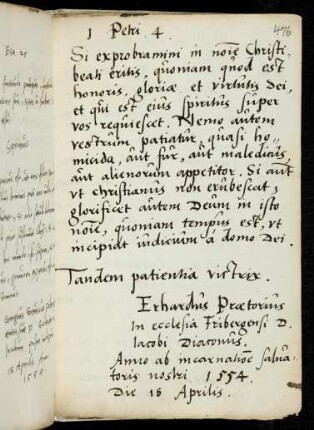 1 Petri 4.
476
Si exprobramini in noīe Christi
beati eritis, quoniam quod est
honoris, gloriæ et virtutis Dei,
et qui est eius spiritus super
vos requiescet. Nemo autem
vestrum patiatur, quasi ho-
micida, aut fur, aut maledicus,
aut alienorum appetitor. Si aūt
vt christianus non erubescat,
glorificet autem Deum in isto
noīe, quoniam tempus est, vt
incipiat iudicium a domo Dei.
Tandem patientia victrix.
Erhardus Prætorius
In ecclesia Fribergensi D.
Iacobi Diaconus.
Anno ab incarnatiōe salua-
toris nostri 1554.
Die 18 Aprilis.
18 Aprilis
1554.